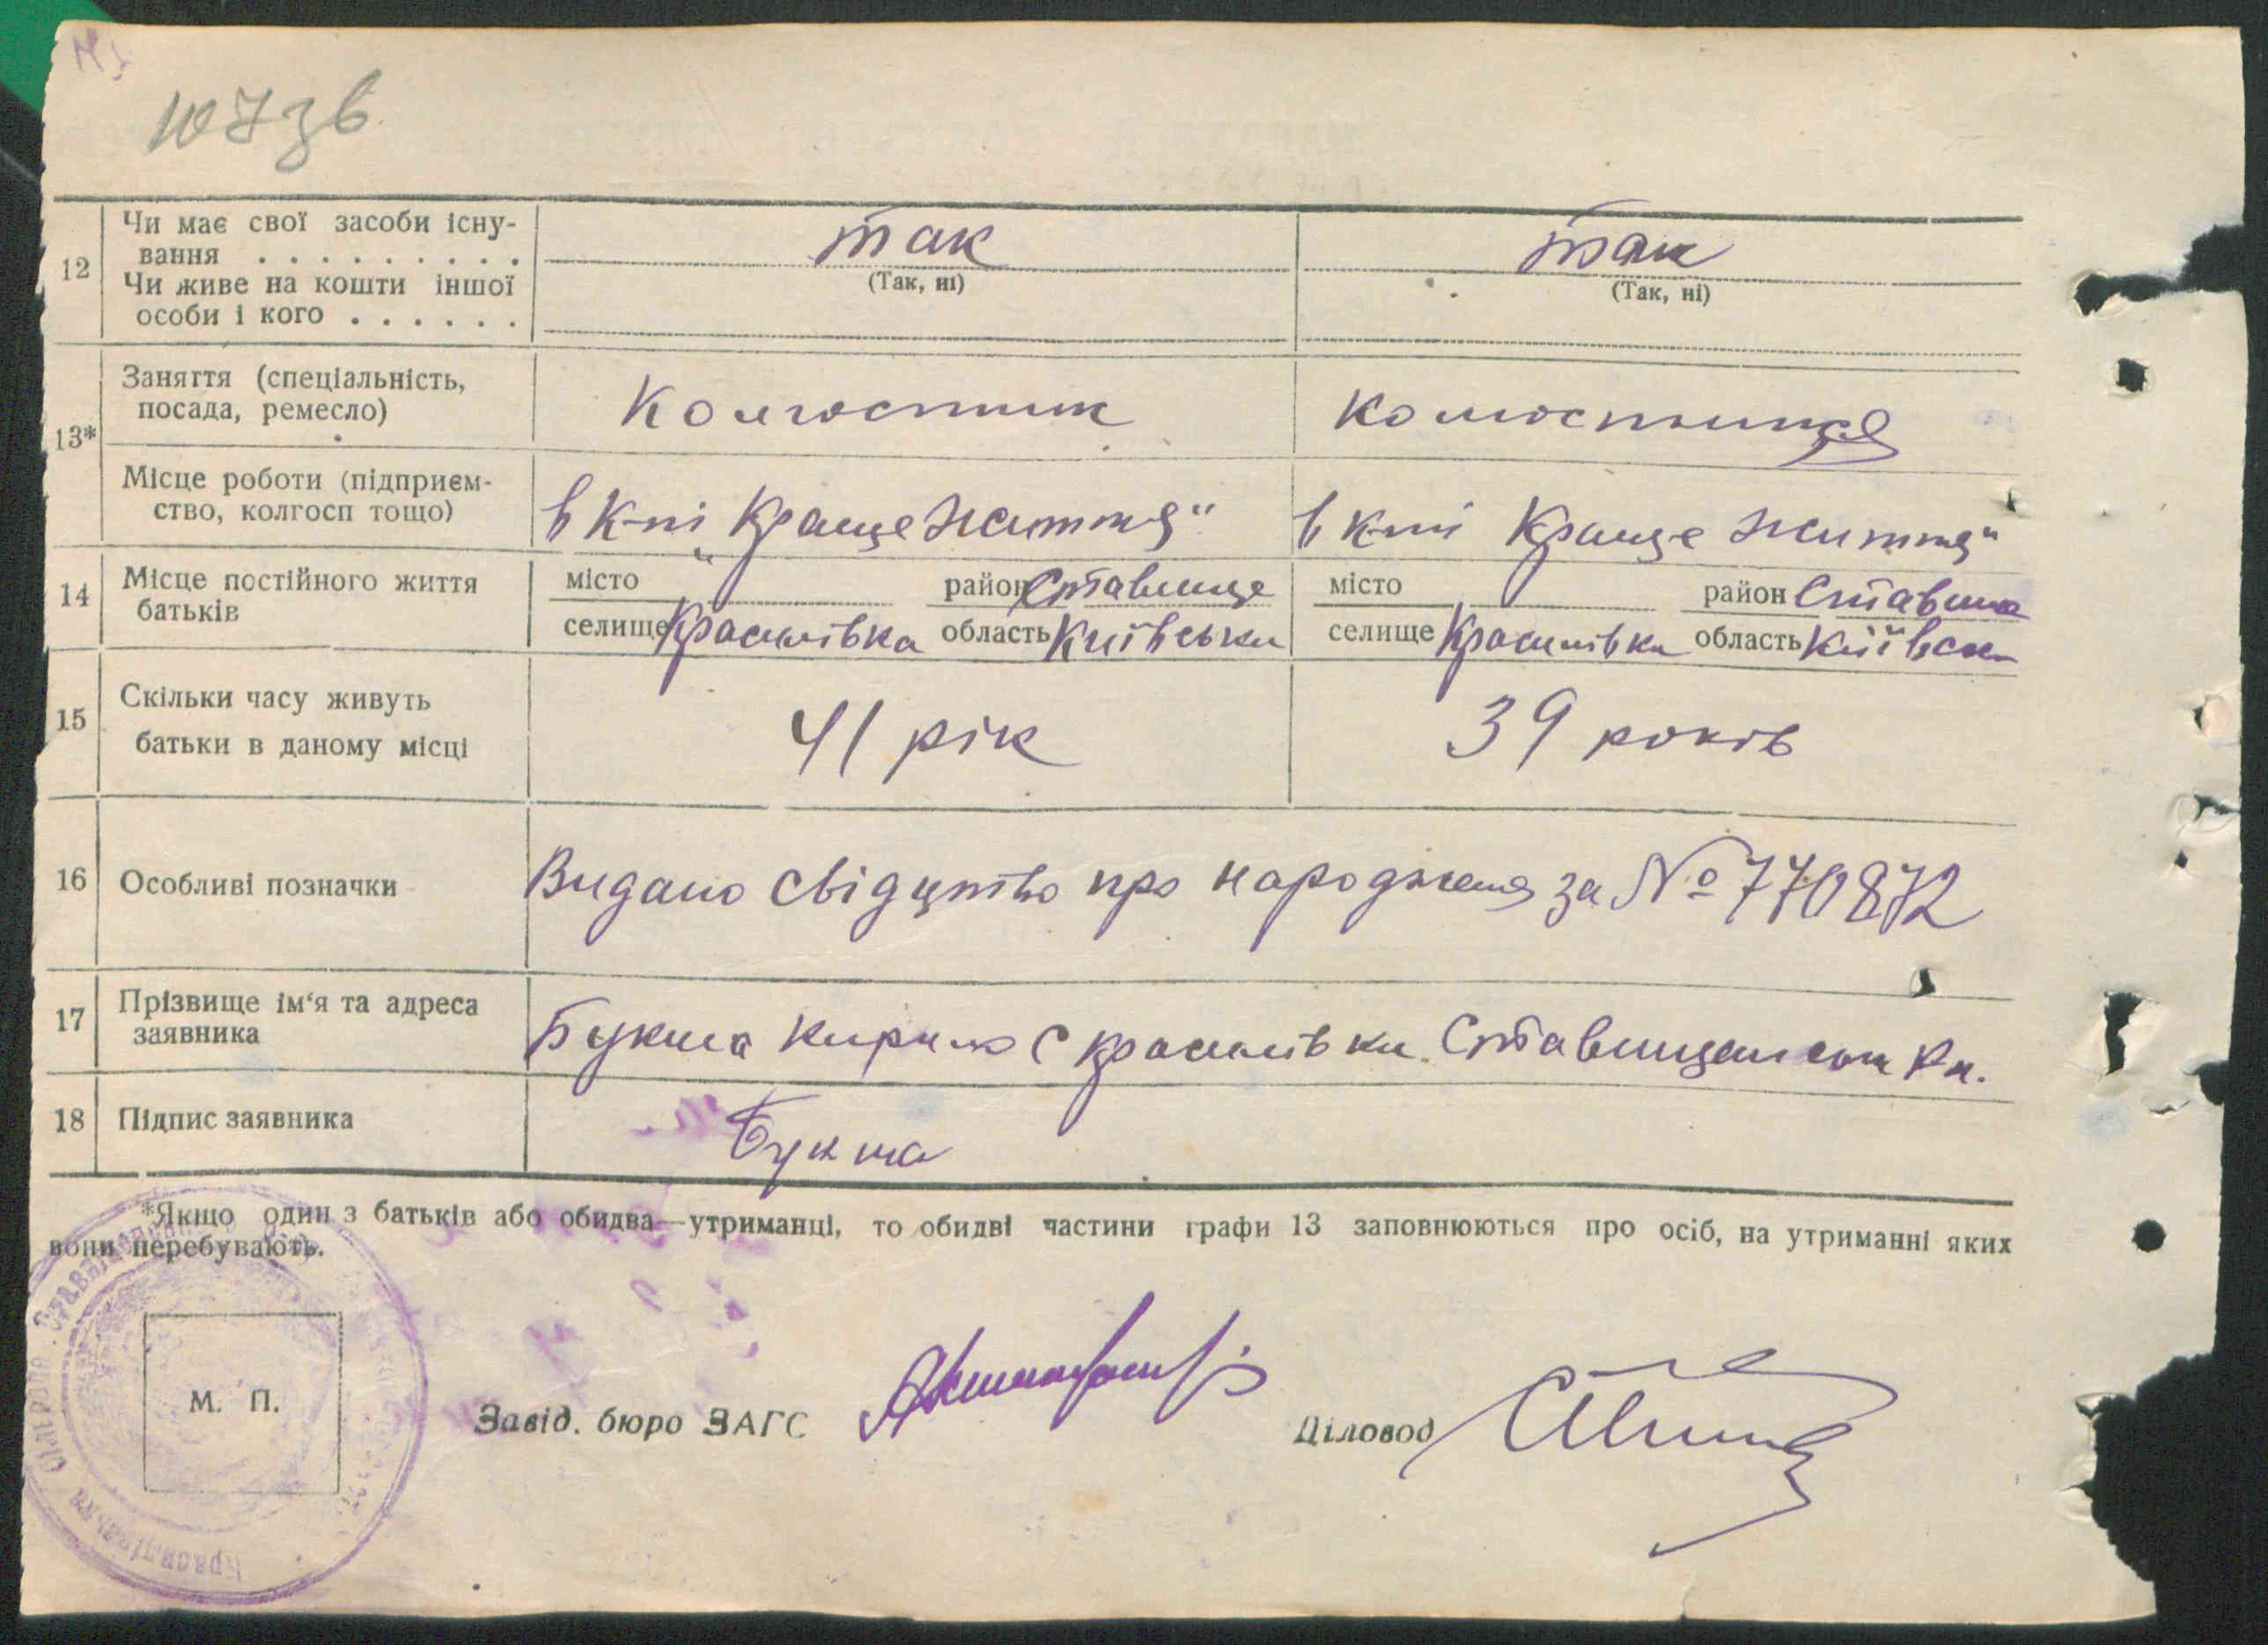 107 зв
12 Чи має свої засоби існу-
вання . . . . . . . . . так так
Чи живе на кошти іншої (Так, ні) (Так, ні)
особи і кого . . . . . .
13* Заняття (спеціальність,
посада, ремесло) Колгоспник колгоспниця
Місце роботи (підприєм-
ство, колгосп тощо) в к-пі „Краще життя" в к-пі Краще життя"
14 Місце постійного життя місто район Ставище місто район Ставища
батьків селище Красилівка область Київська селище Красилівка область Київськ
15 Скільки часу живуть
батьки в даному місці 41 рік 39 років
16 Особливі позначки Видано свідуцтво про народженя за № 770872
17 Прізвище ім'я та адреса
заявника Букша Кирило С Красилівки Ставищанськ Рн.
18 Підпис заявника Букша
*Якщо один з батьків або обидва—утриманці, то обидві частини графи 13 заповнюються про осіб, на утриманні яких
вони перебувають.
М. П.
Завід. бюро ЗАГС Діловод